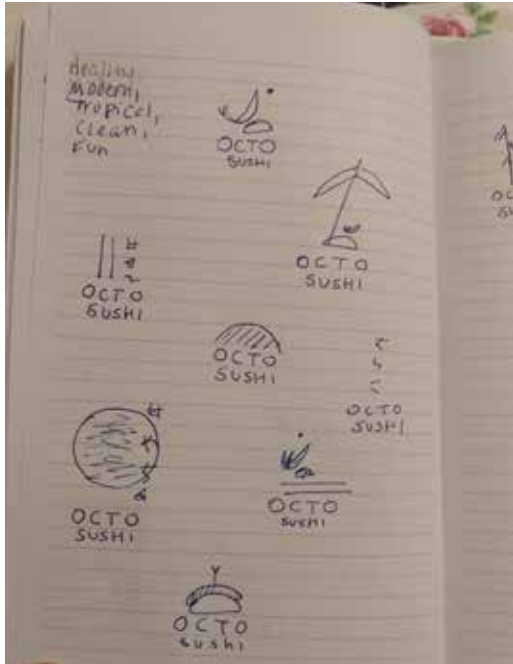 Healthy,
Modern,
Tropical,
Clean,
Fun
OCTO
SUSHI
OCTO
SUSHI
OCTO
SUSHI
OCTO
SUSHI
OCTO
SUSHI
OCTO
SUSHI
OCTO
SUSHI
OCTO
sushi